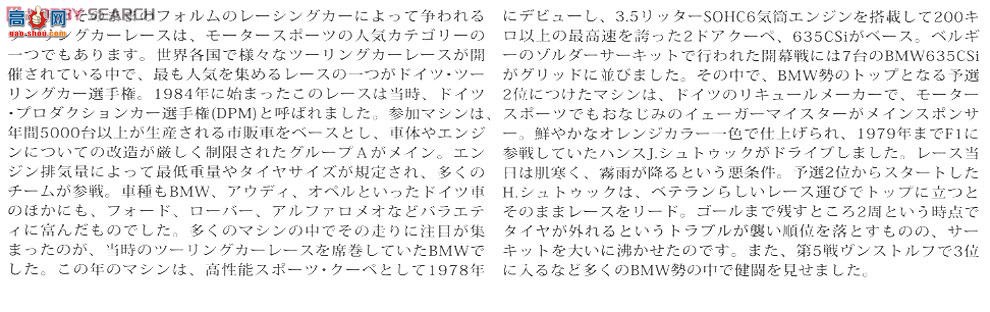 高高网
gao-shou.com
HOBBY SEARCH
そのフォルムのレーシングカーによって争われる
ングカーレースは、モータースポーツの人気カテゴリーの
一つでもあります。世界各国で様々なツーリングカーレースが開
催されている中で、最も人気を集めるレースの一つがドイツ・ツー
リングカー選手権。1984年に始まったこのレースは当時、ドイツ
・プロダクションカー選手権(DPM)と呼ばれました。参加マシンは、
年間5000台以上が生産される市販車をベースとし、車体やエンジ
ンについての改造が厳しく制限されたグループAがメイン。エン
ジン排気量によって最低重量やタイヤサイズが規定され、多くの
チームが参戦。車種もBMW、アウディ、オペルといったドイツ車
のほかにも、フォード、ローバー、アルファロメオなどバラエテ
ィに富んだものでした。多くのマシンの中でその走りに注目が集
まったのが、当時のツーリングカーレースを席巻していたBMWで
した。この年のマシンは、高性能スポーツ・クーペとして1978年
にデビューし、3.5リッターSOHC6気筒エンジンを搭載して200キ
ロ以上の最高速を誇った2ドアクーペ、635CSiがベース。ベルギ
ーのゾルダーサーキットで行われた開幕戦には7台のBMW635CSi
がグリッドに並びました。その中で、BMW勢のトップとなる予選
2位につけたマシンは、ドイツのリキュールメーカーで、モーター
スポーツでもおなじみのイェーガーマイスターがメインスポンサ
ー。鮮やかなオレンジカラー一色で仕上げられ、1979年までF1に
参戦していたハンスJ.シュトゥックがドライブしました。レース当
日は肌寒く、霧雨が降るという悪条件。予選2位からスタートした
H.シュトゥックは、ベテランらしいレース運びでトップに立つと
そのままレースをリード。ゴールまで残すところ2周という時点で
タイヤが外れるというトラブルが襲い順位を落とすものの、サー
キットを大いに沸かせたのです。また、第5戦ヴンストルフで3位
に入るなど多くのBMW勢の中で健闘を見せました。